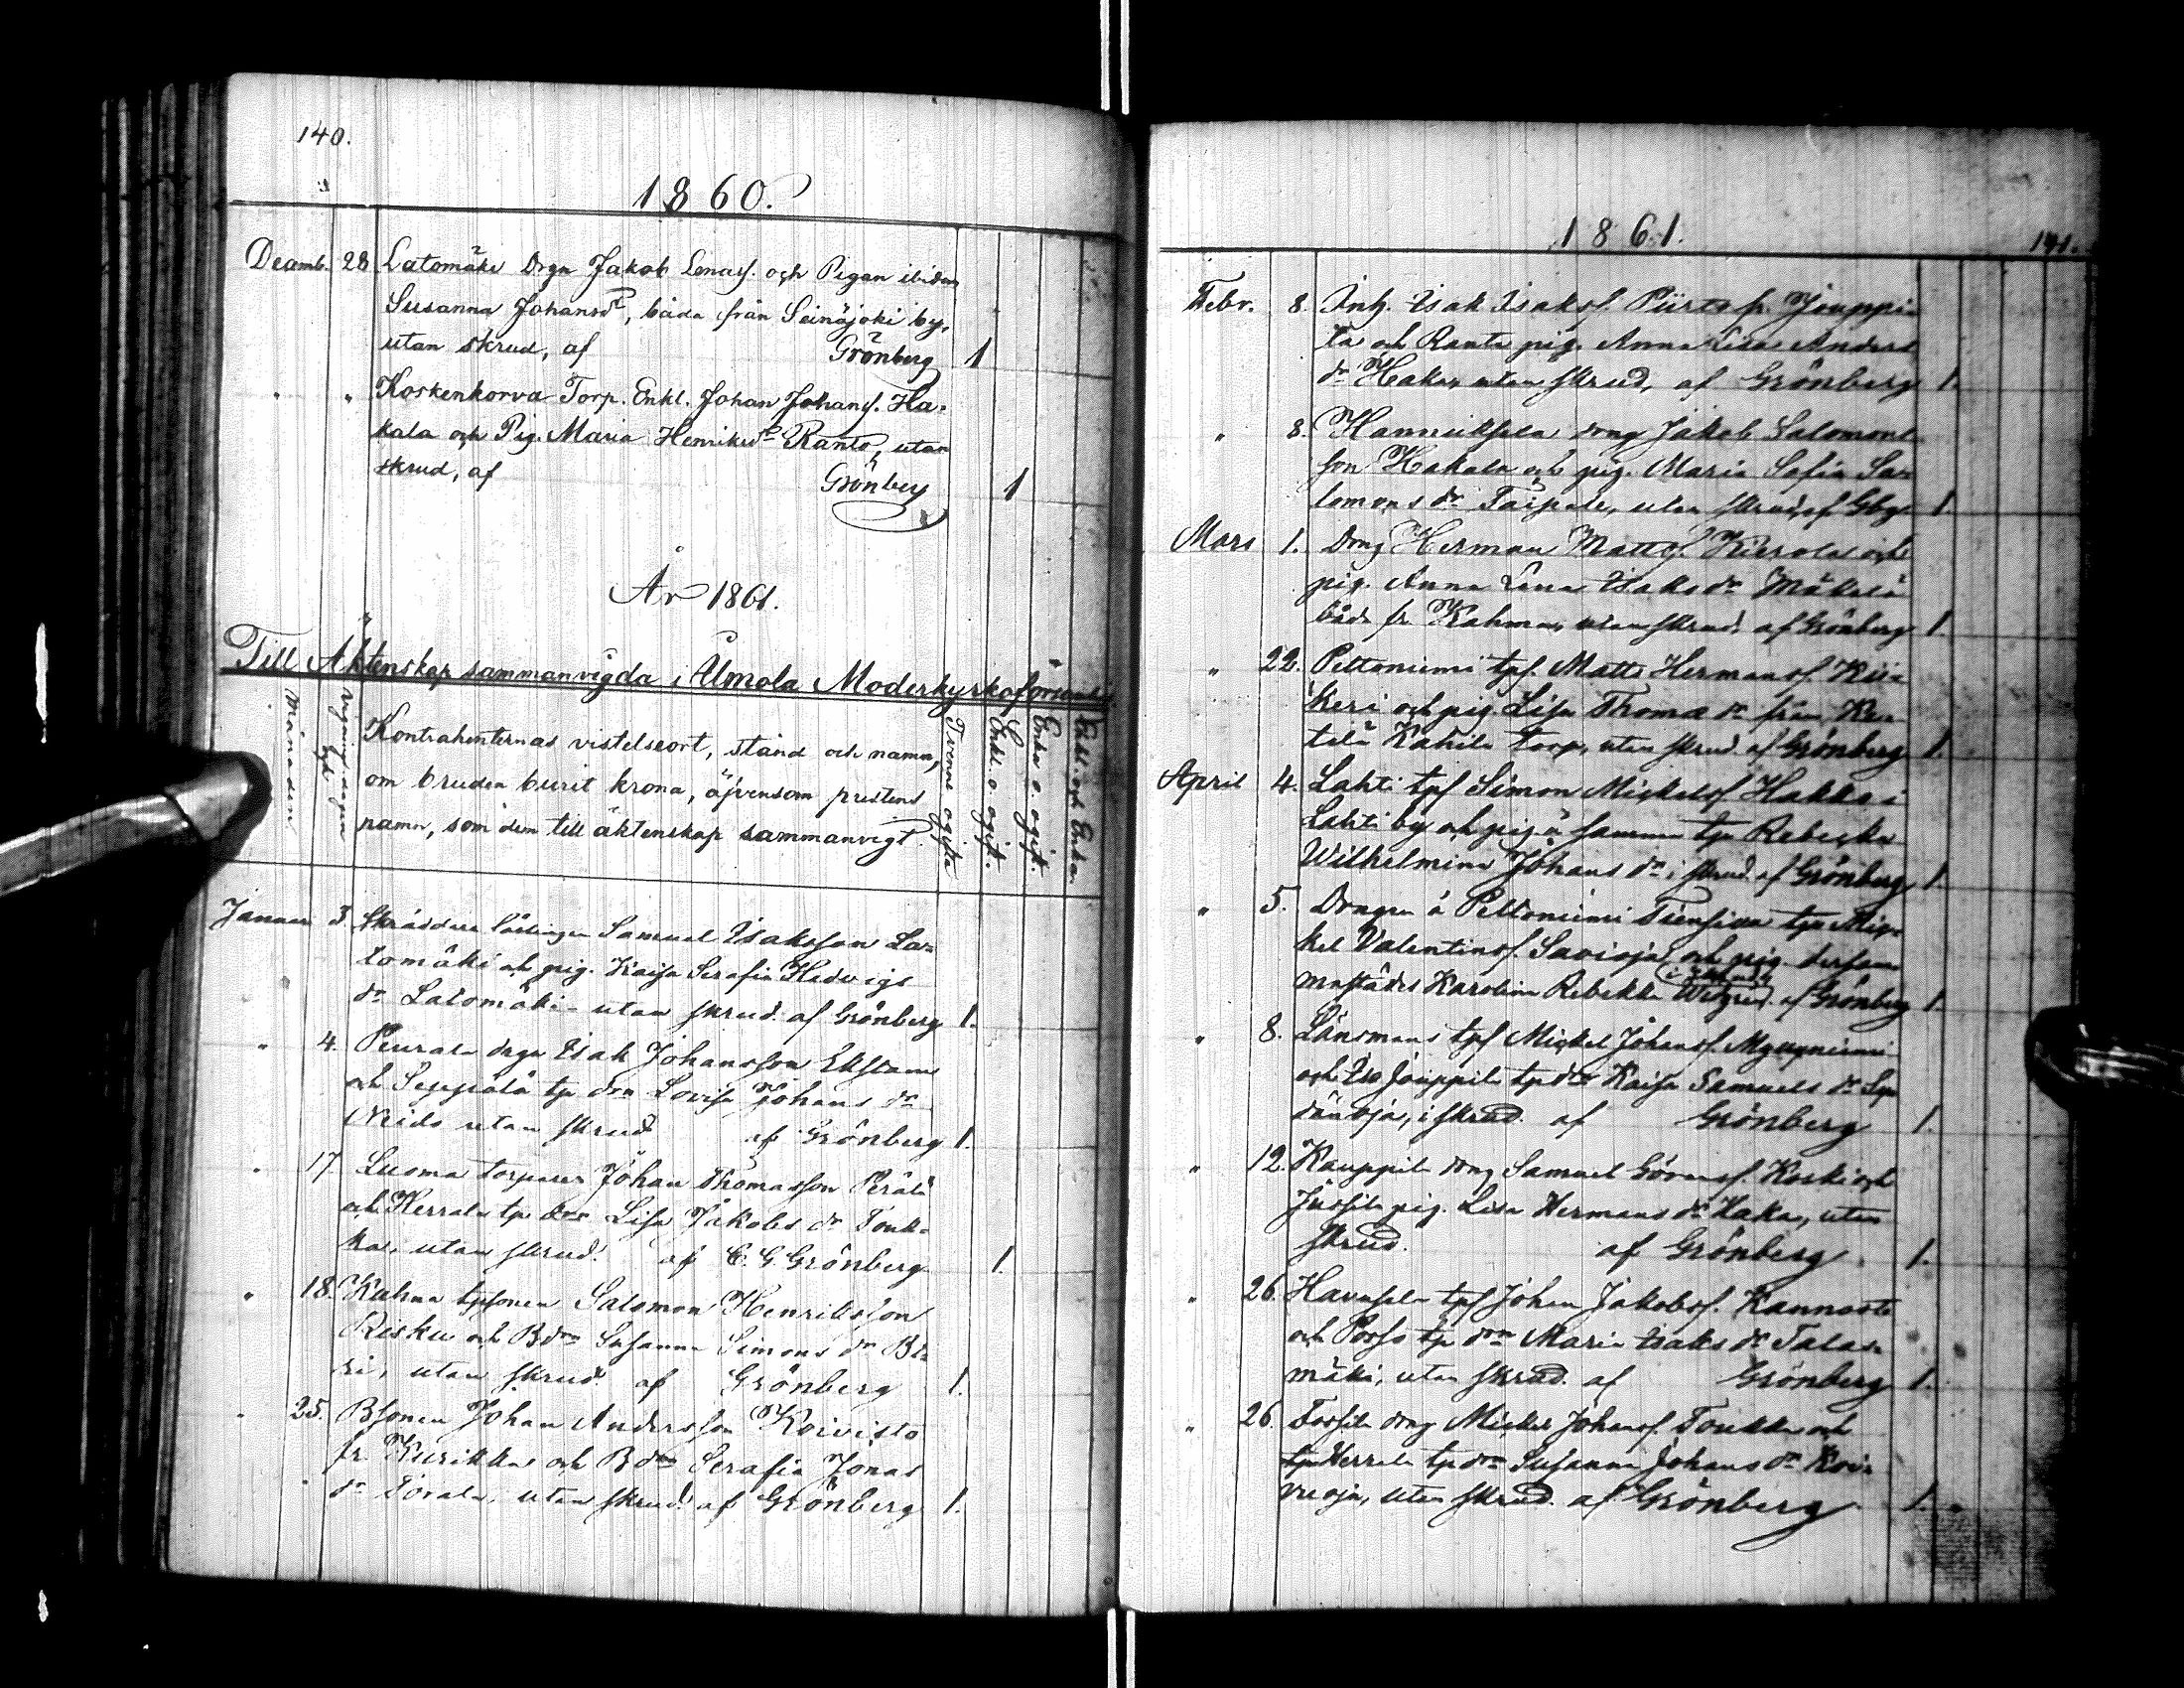 140.
1860.
Decemb. 28 Latomäki Drgn Jakob Lenas. och Pigan ibidem
Susanna Johansdr, båda från Seinäjoki by,
utan skrud, af Grönberg 1
" " Koskenkorva Torp. Enkl. Johan Johans. Ha-
kala och Pig. Maria Henriksdr Ranto, utan
skrud, af Grönberg 1
År 1861.
Till Äktenskap sammanvigda i Ilmola Moderkyrkoförsamling
Månaden
Vigningsdagen
Kontrahenternas vistelseort, stånd och namn,
om bruden burit krona, äfvensom prestens
namn, som dem till äktenskap sammanvigt.
Tvenne ogifta
Enkl. o. ogift.
Enka o. ogift.
Enkl. och Enka.
Januari 3 Skräddare lärlingen Samuel Isaksson La-
tomäki och pig. Kaisa Serafia Hedvigs
dr Latomäki utan skrud af Grönberg 1.
" 4. Peurala drgn Isak Johansson Ekstam
och Seppälä tp drn Lovisa Johans dr
utan skrud af Grönberg 1.
" 17 Luoma torparen Johan Thomasson Perälä
och Herrala tp drn Lisa Jakobs dr Touk-
ka, utan skrud af C. G. Grönberg 1.
" 18. Kahma tpsonen Salomon Henriksson
Risku och Bdrn Susanna Simons dr
utan skrud af Grönberg 1.
" 25. Bsonen Johan Andersson Koivisto
fr. Kurikka och Bdrn Serafia Jonas
dr utan skrud af Grönberg 1.
1861.
141.
Febr. 8. Inh. Isak Isakss. Piirto fr. Jouppi-
la och Ranta pig. Anna Lisa Anders
dr Haka, utan skrud, af Grönberg 1.
" 8. Hannuksela drng Jakob Salomons
son Hakala och pig. Maria Sofia Sa-
lomons dr Taipale, utan skrud, af Gbg 1.
Mars 1. Drng Herman Mattss. och
pig. Anna Lena Isaks dr Mäkelä
både fr. Kahma, utan skrud af Grönberg 1.
" 22. Peltoniemi tps. Matts Hermanss. Kii-
keri och pig. Lisa Thomæ dr från
torp, utan skrud af Grönberg 1.
April 4. Lahti tps Simon Mickelss. Hakko i
Lahti by och pig. å samma tp Rebecka
Wilhelmina Johans dr i skrud af Grönberg 1.
" 5. Drngen å Peltoniemi tp Mic-
kel Valentinss. Savioja, och pig. dersam-
mastädes Karolina Rebekka i skrud af Grönberg 1.
" 8. Länsmans tps Mickel Johanss. Myyryniemi
och Iso Jouppila tpdr Kaisa Samuels dr Sy-
dänoja, i skrud. af Grönberg 1.
" 12. Kauppila drng Samuel Göranss. Koski och
Jussila pig. Lisa Hermans dr Haka, utan
skrud. af Grönberg 1.
" 26. tps Johan Jakobss. Kannosto
och tp drn Maria Isaks dr Talas-
mäki, utan skrud. af Grönberg 1.
" 26. drng Mickel Johanss. Toukka och
Herrala tpdrn Susanna Johans dr Koi-
vuoja, utan skrud. af Grönberg 1.